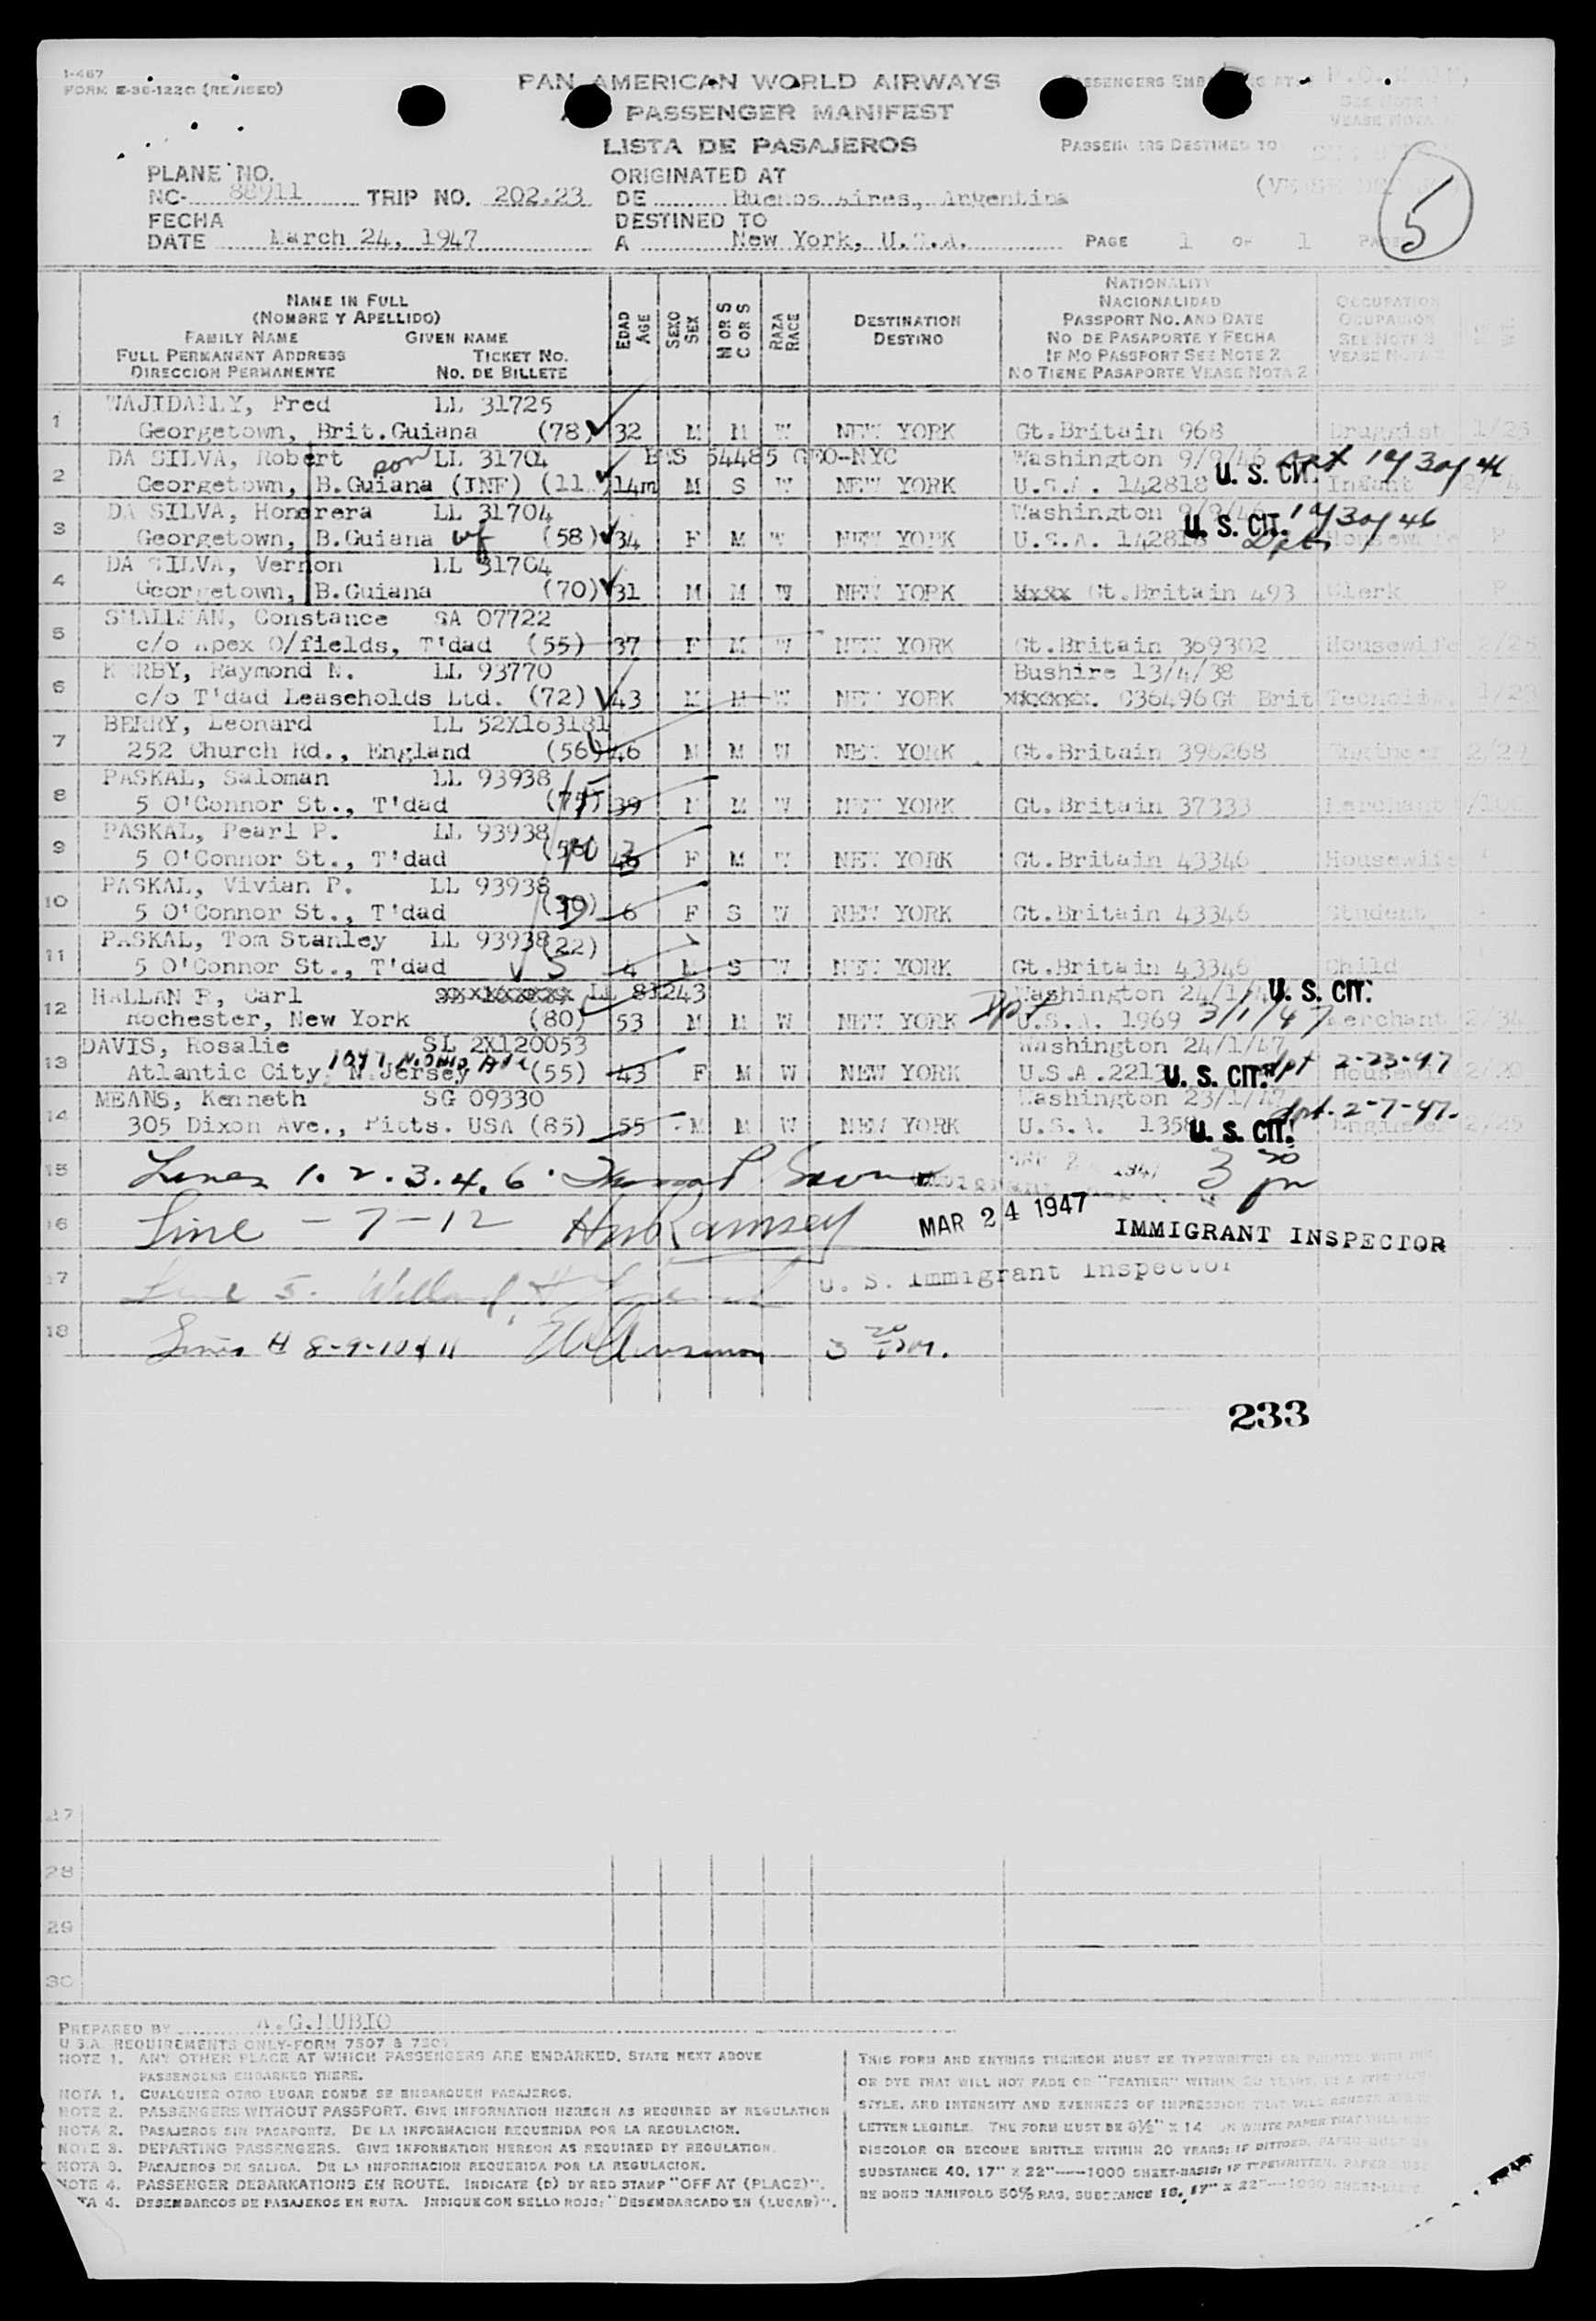 1-467
FORM E-36-122C (REVISED)
PAN AMERICAN WORLD AIRWAYS
PASSENGER MANIFEST
LISTA DE PASAJEROS
PASSENGERS DESTINED TO
5
PLANE NO.
NC- 88911 TRIP NO. 202.23
ORIGINATED AT
DE Buenos Aires, Argentina
FECHA
DATE March 24, 1947
DESTINED TO
A New York, U.S.A.
PAGE 1 OF 1
NAME IN FULL
(NOMBRE Y APELLIDO)
FAMILY NAME GIVEN NAME
FULL PERMANENT ADDRESS TICKET NO.
DIRECCION PERMANENTE NO. DE BILLETE
EDAD AGE
SEXO SEX
M OR S C OR S
RAZA RACE
DESTINATION
DESTINO
NATIONALITY
NACIONALIDAD
PASSPORT NO. AND DATE
NO DE PASAPORTE Y FECHA
IF NO PASSPORT SEE NOTE 2
NO TIENE PASAPORTE VEASE NOTA 2
OCCUPATION
OCUPACION
SEE NOTE 3
VEASE NOTA 3
1 WAJIDALLY, Fred LL 31725
Georgetown, Brit.Guiana (78) 32 M M W NEW YORK Gt.Britain 968 Druggist 1/25
2 DA SILVA, Robert son LL 31704 54485 GEO-NYC Washington 9/9/46
Georgetown, B.Guiana (INF) (11) 14m M S W NEW YORK U.S.A. 142818 U. S. CIT. Infant
3 DA SILVA, Honorera LL 31704 Washington 9/9/46
Georgetown, B.Guiana wf (58) 34 F M W NEW YORK U.S.A. 142818 U. S. CIT. Housewife
4 DA SILVA, Vernon LL 31704
Georgetown, B.Guiana (70) 31 M M W NEW YORK Gt.Britain 493 Clerk
5 SMALLMAN, Constance SA 07722
c/o Apex O/fields, T'dad (55) 37 F M W NEW YORK Gt.Britain 369302 Housewife 2/25
6 KERBY, Raymond N. LL 93770 Bushire 13/4/38
c/o T'dad Leaseholds Ltd. (72) 43 M M W NEW YORK C36496 Gt Brit
7 BERRY, Leonard LL 52X163181
252 Church Rd., England (56) 46 M M W NEW YORK Gt.Britain 396268 Engineer 2/29
8 PASKAL, Saloman LL 93938
5 O'Connor St., T'dad 39 M M W NEW YORK Gt.Britain 37333 Merchant
9 PASKAL, Pearl P. LL 93938
5 O'Connor St., T'dad F M W NEW YORK Gt.Britain 43346 Housewife
10 PASKAL, Vivian P. LL 93938
5 O'Connor St., T'dad (30) 6 F S W NEW YORK Gt.Britain 43346 Student
11 PASKAL, Tom Stanley LL 93938 (22)
5 O'Connor St., T'dad 4 M S W NEW YORK Gt.Britain 43346 Child
12 HALLAN P, Carl LL 81243 Washington 24/1/47 U. S. CIT.
Rochester, New York (80) 53 M M W NEW YORK Dpt U.S.A. 1969 3/1/47 Merchant 2/34
13 DAVIS, Rosalie SL 2X120053 Washington 24/1/47
Atlantic City, N.Jersey (55) 43 F M W NEW YORK U.S.A. 2213 U. S. CIT. dpt 2-23-47 Housewife
14 MEANS, Kenneth SG 09330 Washington 23/1/47 dpt. 2-7-47.
305 Dixon Ave., Pitts. USA (85) 55 M M W NEW YORK U.S.A. 1358 U. S. CIT. Engineer 2/25
15 Lines 1. 2. 3. 4. 6. 3 30 pm
16 Line - 7 - 12 HM Ramsey MAR 24 1947 IMMIGRANT INSPECTOR
17 Line 5. U. S. Immigrant Inspector
18 Lines # 8-9-10 & 11
233
27
28
29
30
PREPARED BY A.G.RUBIO
U.S.A. REQUIREMENTS ONLY-FORM 7507 &
NOTE 1. ANY OTHER PLACE AT WHICH PASSENGERS ARE EMBARKED, STATE NEXT ABOVE
PASSENGERS EMBARKED THERE.
NOTA 1. CUALQUIER OTRO LUGAR DONDE SE EMBARQUEN PASAJEROS.
NOTE 2. PASSENGERS WITHOUT PASSPORT. GIVE INFORMATION HEREON AS REQUIRED BY REGULATION
NOTA 2. PASAJEROS SIN PASAPORTE. DE LA INFORMACION REQUERIDA POR LA REGULACION.
NOTE 3. DEPARTING PASSENGERS. GIVE INFORMATION HEREON AS REQUIRED BY REGULATION.
NOTA 3. PASAJEROS DE SALIDA. DE LA INFORMACION REQUERIDA POR LA REGULACION.
NOTE 4. PASSENGER DEBARKATIONS EN ROUTE. INDICATE (D) BY RED STAMP "OFF AT (PLACE)".
TA 4. DESEMBARCOS DE PASAJEROS EN RUTA. INDIQUE CON SELLO ROJO: "DESEMBARCADO EN (LUGAR)".
THIS FORM AND ENTRIES THEREON MUST BE TYPEWRITTEN OR PRINTED WITH INK
OR DYE THAT WILL NOT FADE OR "FEATHER" WITHIN 20 YEARS,
STYLE, AND INTENSITY AND EVENNESS OF IMPRESSION THAT WILL RENDER
LETTER LEGIBLE. THE FORM MUST BE 8½" X 14" ON WHITE PAPER THAT WILL
DISCOLOR OR BECOME BRITTLE WITHIN 20 YEARS; IF DITTOED, PAPER MUST BE
SUBSTANCE 40, 17" X 22"—1000 SHEET-BASIS; IF TYPEWRITTEN, PAPER
BE BOND MANIFOLD 50% RAG, SUBSTANCE 16, 17" X 22"—1000